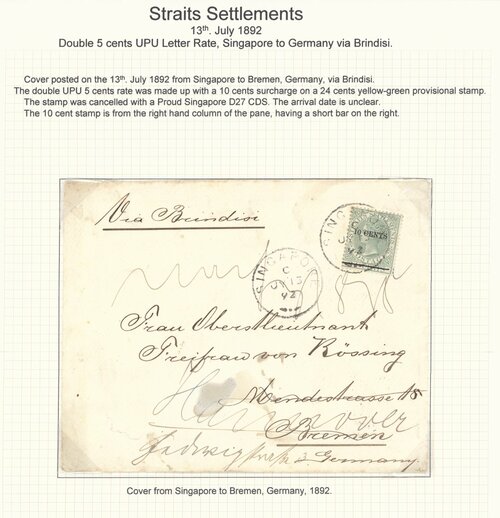 Straits Settlements
13th. July 1892
Double 5 cents UPU Letter Rate, Singapore to Germany via Brindisi.
Cover posted on the 13th. July 1892 from Singapore to Bremen, Germany, via Brindisi.
The double UPU 5 cents rate was made up with a 10 cents surcharge on a 24 cents yellow-green provisional stamp.
The stamp was cancelled with a Proud Singapore D27 CDS. The arrival date is unclear.
The 10 cent stamp is from the right hand column of the pane, having a short bar on the right.
Via Brindisi
10 CENTS
SINGAPORE
C
JY 13
92
Frau Oberstlieutnant
Freifrau von Rössing
Mendestrasse 15
Hannover
Bremen
Germany
Cover from Singapore to Bremen, Germany, 1892.